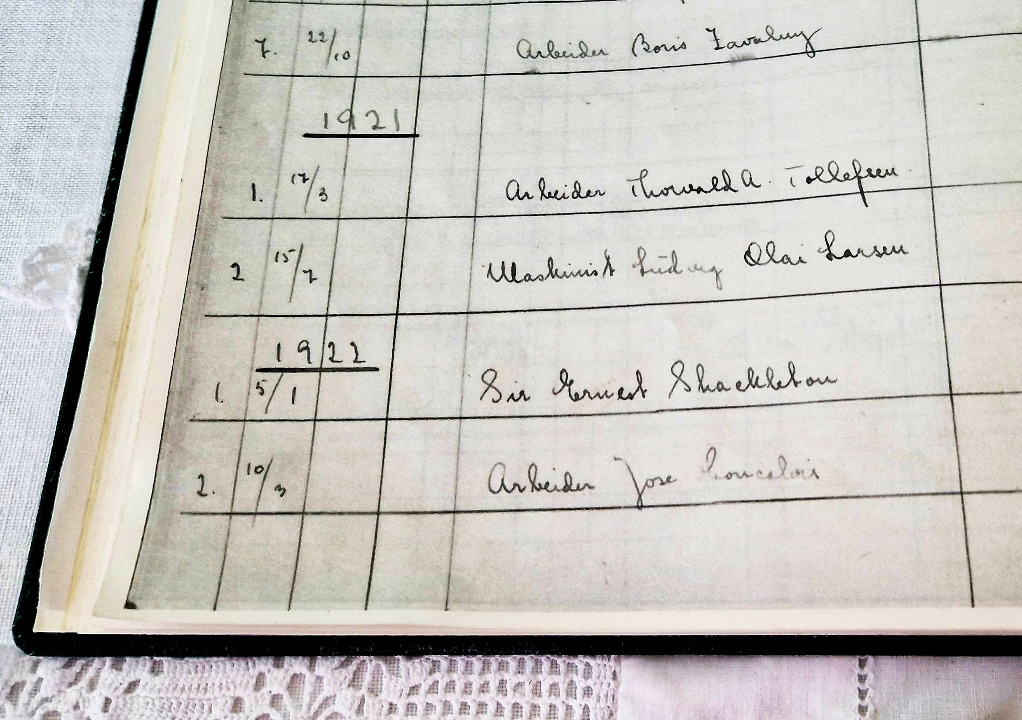 7. 22/10 Arbeider Boris Zavalny
1921
1. 17/3 Arbeider Thorvald A. Tollefsen
2 15/7 Maskinist Ludvig Olai Larsen
1922
1. 5/1 Sir Ernest Shackleton
2. 10/3 Arbeider Jose